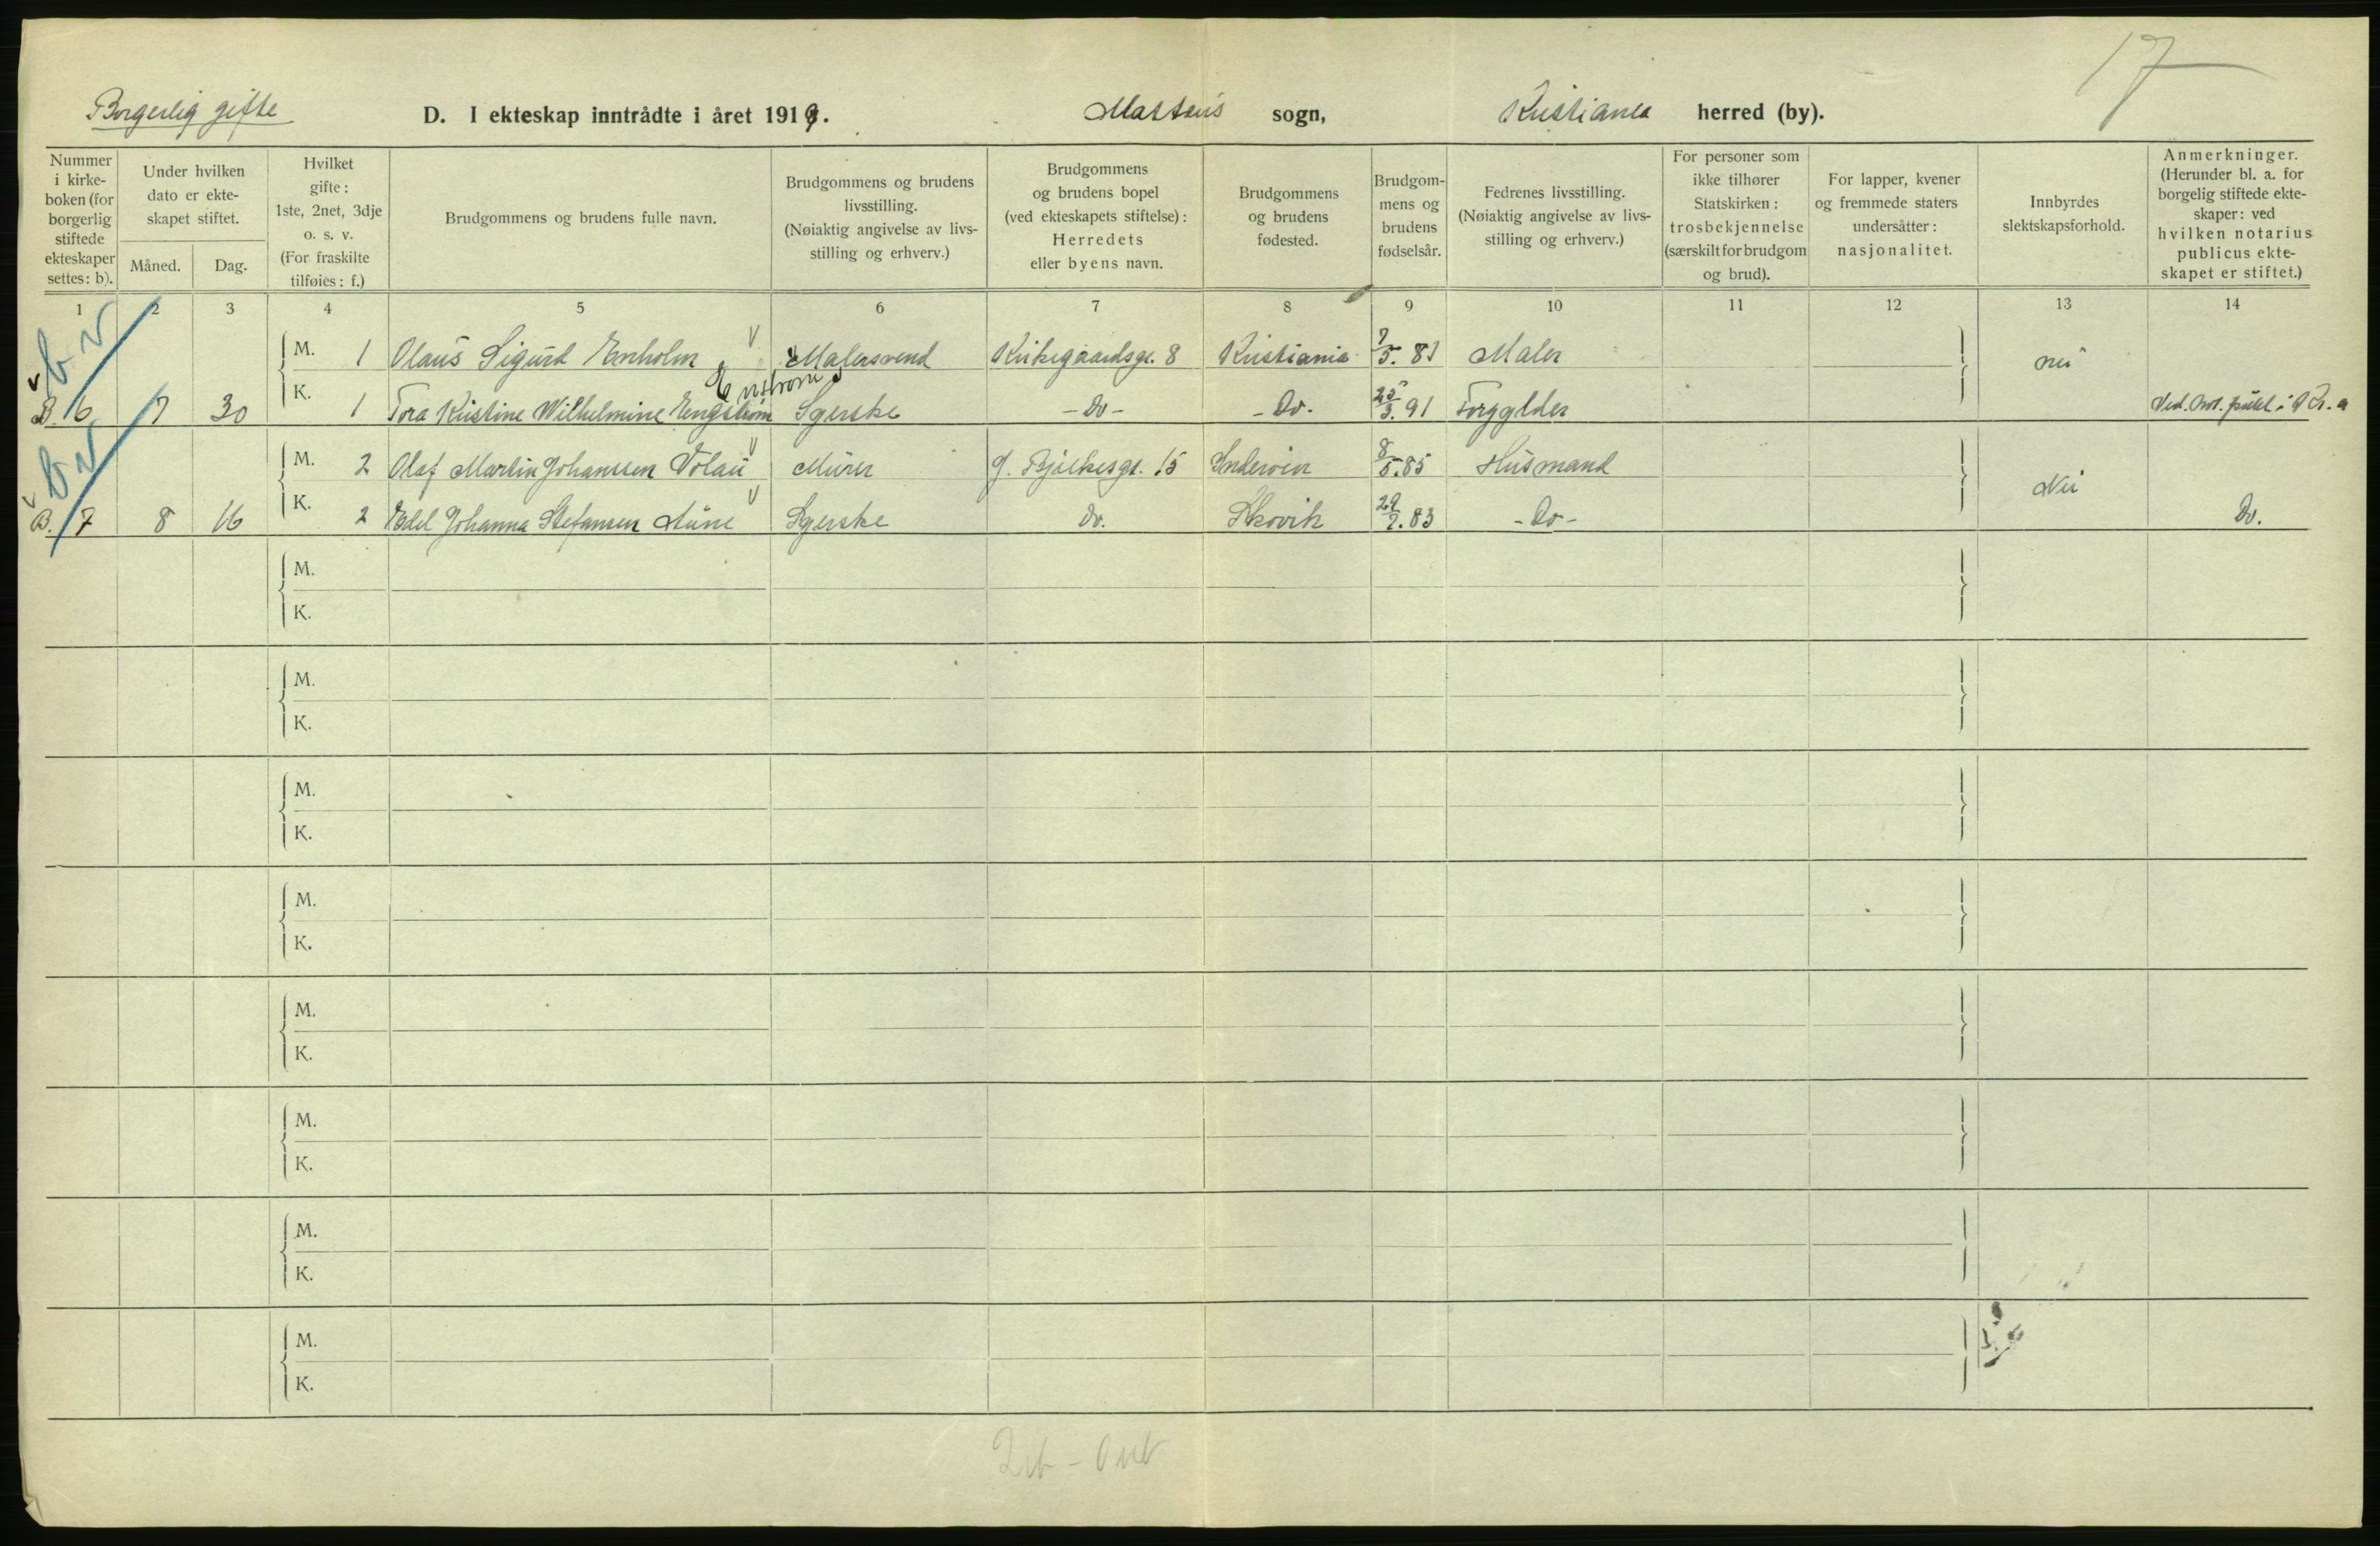 17
Borgerlig gifte D. I ekteskap inntrådte i året 1919. Matteus sogn, Kristiania herred (by).
Nummer i kirke- boken (for borgerlig stiftede ekteskaper settes: b).
Under hvilken dato er ekte- skapet stiftet.
Måned. Dag.
Hvilket gifte: 1ste, 2net, 3dje o. s. v. (For fraskilte tilføies: f.)
Brudgommens og brudens fulle navn.
Brudgommens og brudens livsstilling. (Nøiaktig angivelse av livs- stilling og erhverv.)
Brudgommens og brudens bopel (ved ekteskapets stiftelse): Herredets eller byens navn.
Brudgommens og brudens fødested.
Brudgom- mens og brudens fødselsår.
Fedrenes livsstilling. (Nøiaktig angivelse av livs- stilling og erhverv.)
For personer som ikke tilhører Statskirken: trosbekjennelse (særskilt for brudgom og brud).
For lapper, kvener og fremmede staters undersåtter: nasjonalitet.
Innbyrdes slektskapsforhold.
Anmerkninger. (Herunder bl. a. for borgelig stiftede ekte- skaper: ved hvilken notarius publicus ekte- skapet er stiftet.)
1 2 3 4 5 6 7 8 9 10 11 12 13 14
b v
M. 1 Olaus Sigurd Enholm Malersvend Kirkegaardsgt. 8 Kristiania 7/5. 81 Maler nei
Enstrom
B. 6 7 30 K. 1 Tora Kristine Wilhelmine Engstrøm Syerske - Do - - Do. 25/3. 91 Forgylder Ved. Not. publ. i Kr. a
b v
M. 2 Olaf Martin Johanssen Volau Murer J. Bjelkesgt. 15 Inderøen 8/5. 85 Husmand Nei
B. 7 8 16 K. 2 Edel Johanna Stefansen Aune Syerske Do. Skovik 29/7. 83 - Do - Do.
M.
K.
M.
K.
M.
K.
M.
K.
M.
K.
M.
K.
M.
K.
M.
K.